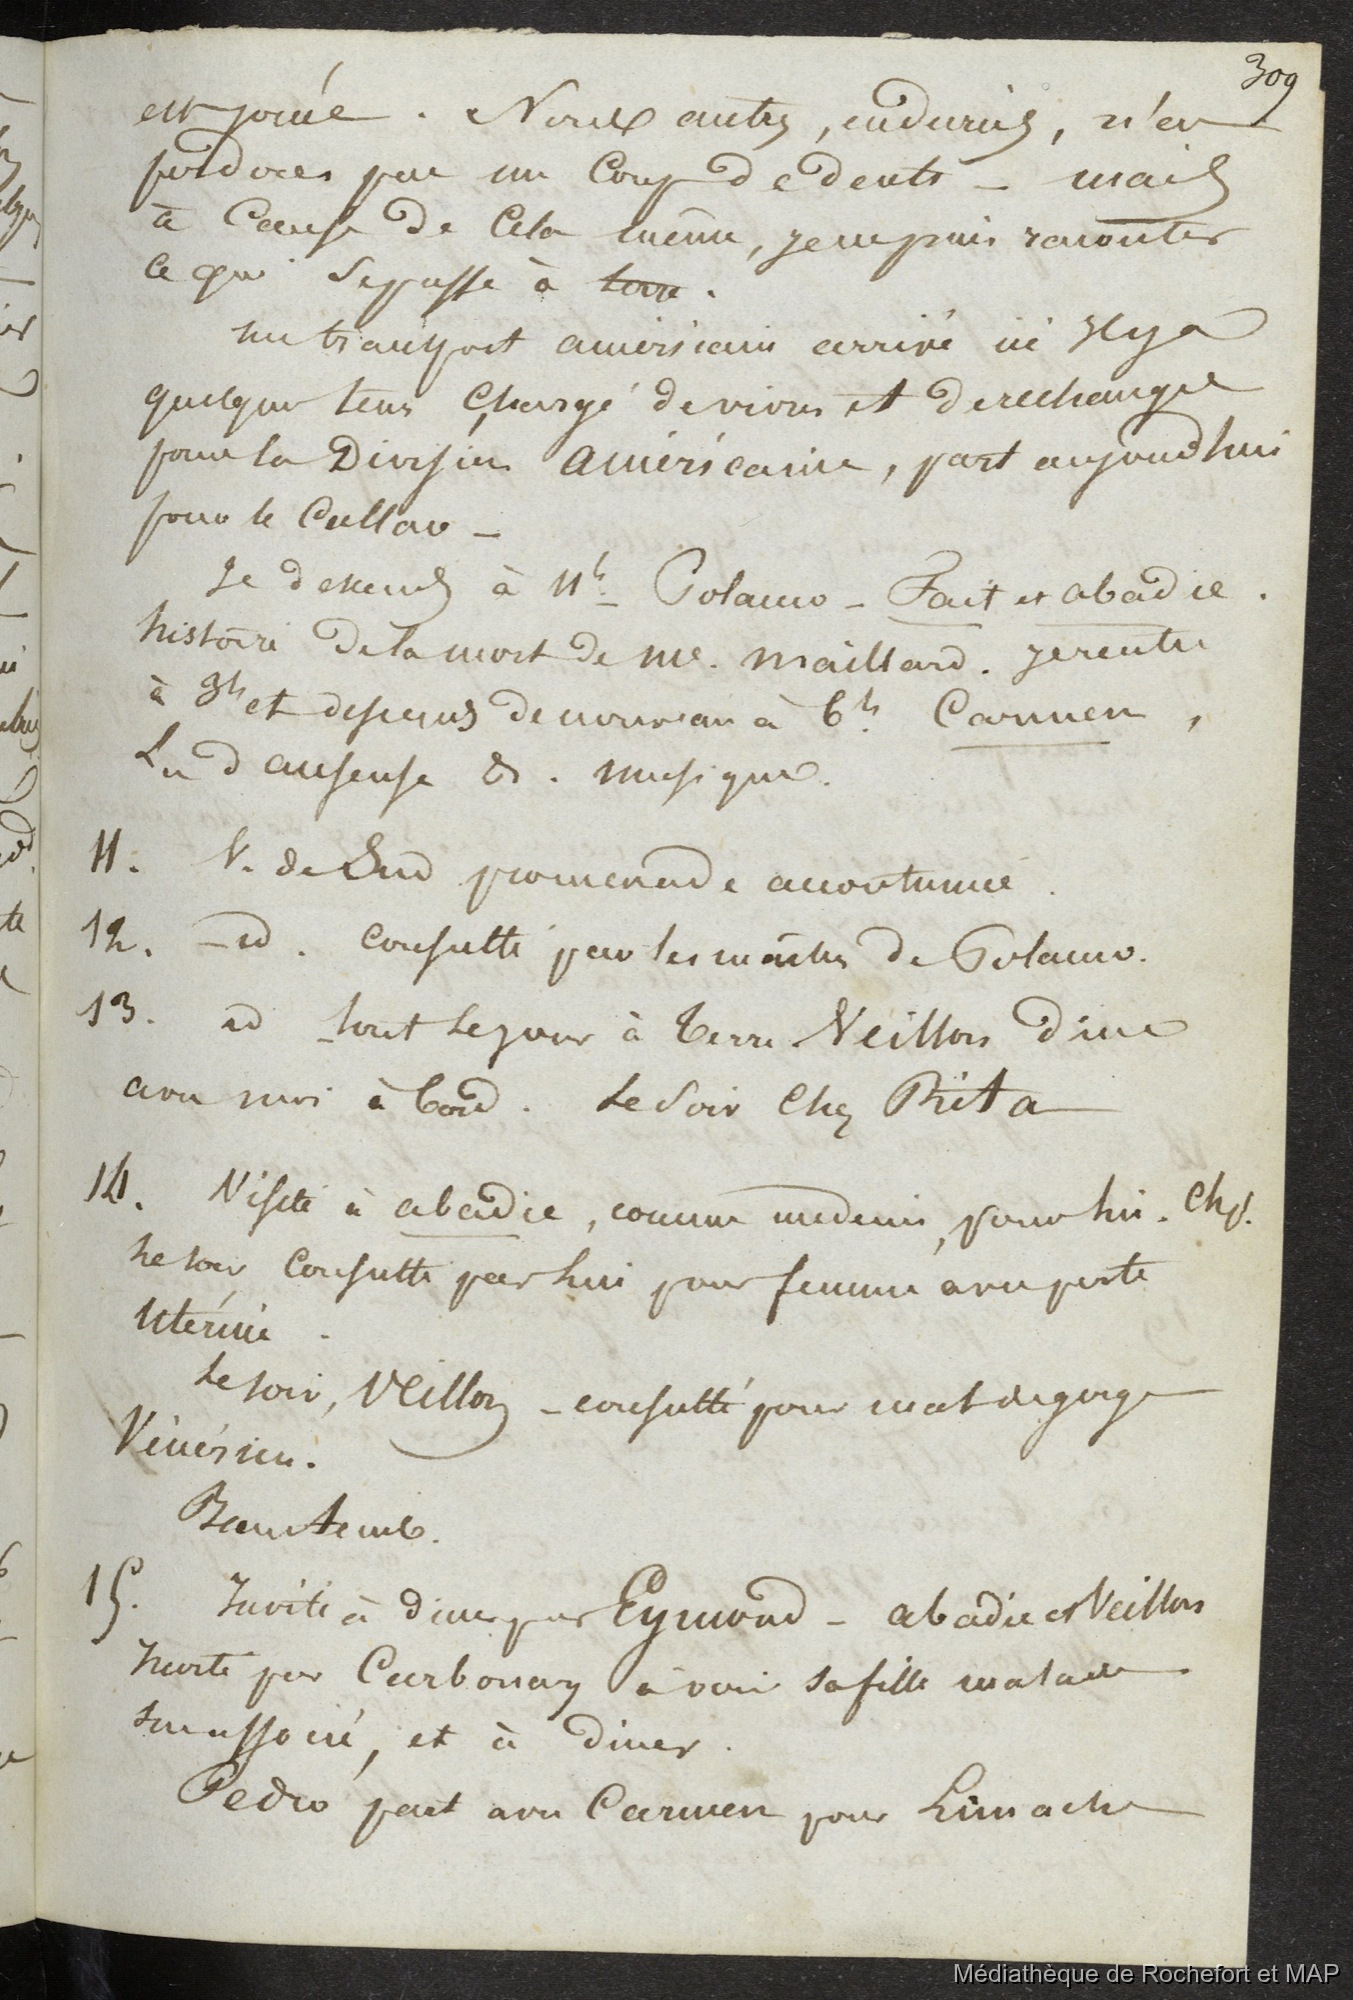 309
est jouée. Nous autres, endurcis, n'en
perdrons pas un coup de dents – mais
à cause de cela même, je ne puis raconter
ce qui se passe à terre.
un transport américain arrivé ici il y a
quelque tems chargé de vivres et de rechanges
pour la Division américaine, part aujourd'hui
pour le Callao –
Je descends à 11h – Polanco – Fait et abadie.
histoire de la mort de Mr. Maillard. je rentre
à 3h et descends de nouveau à 6h. Carmen,
La danseuse &. musique.
11. V. de Sud promenade accoutumée.
12. – id. consulté par les maîtres de Polanco.
13. id tout le jour à terre Veillon dine
avec moi à bord. Le soir chez Rita
14. Visite à abadie, comme medecin, pour lui. Chp.
le soir, consulté par lui pour femme avec perte
Utérine.
Le soir, Veillon – consulté pour mal de gorge
Vénérien.
Beautemps.
15. Invité à diner par Eymond – abadie et Veillon
Invité par Carbonary à voir sa fille malade
son associé, et à diner.
Pedro part avec Carmen pour Limache
Médiathèque de Rochefort et MAP